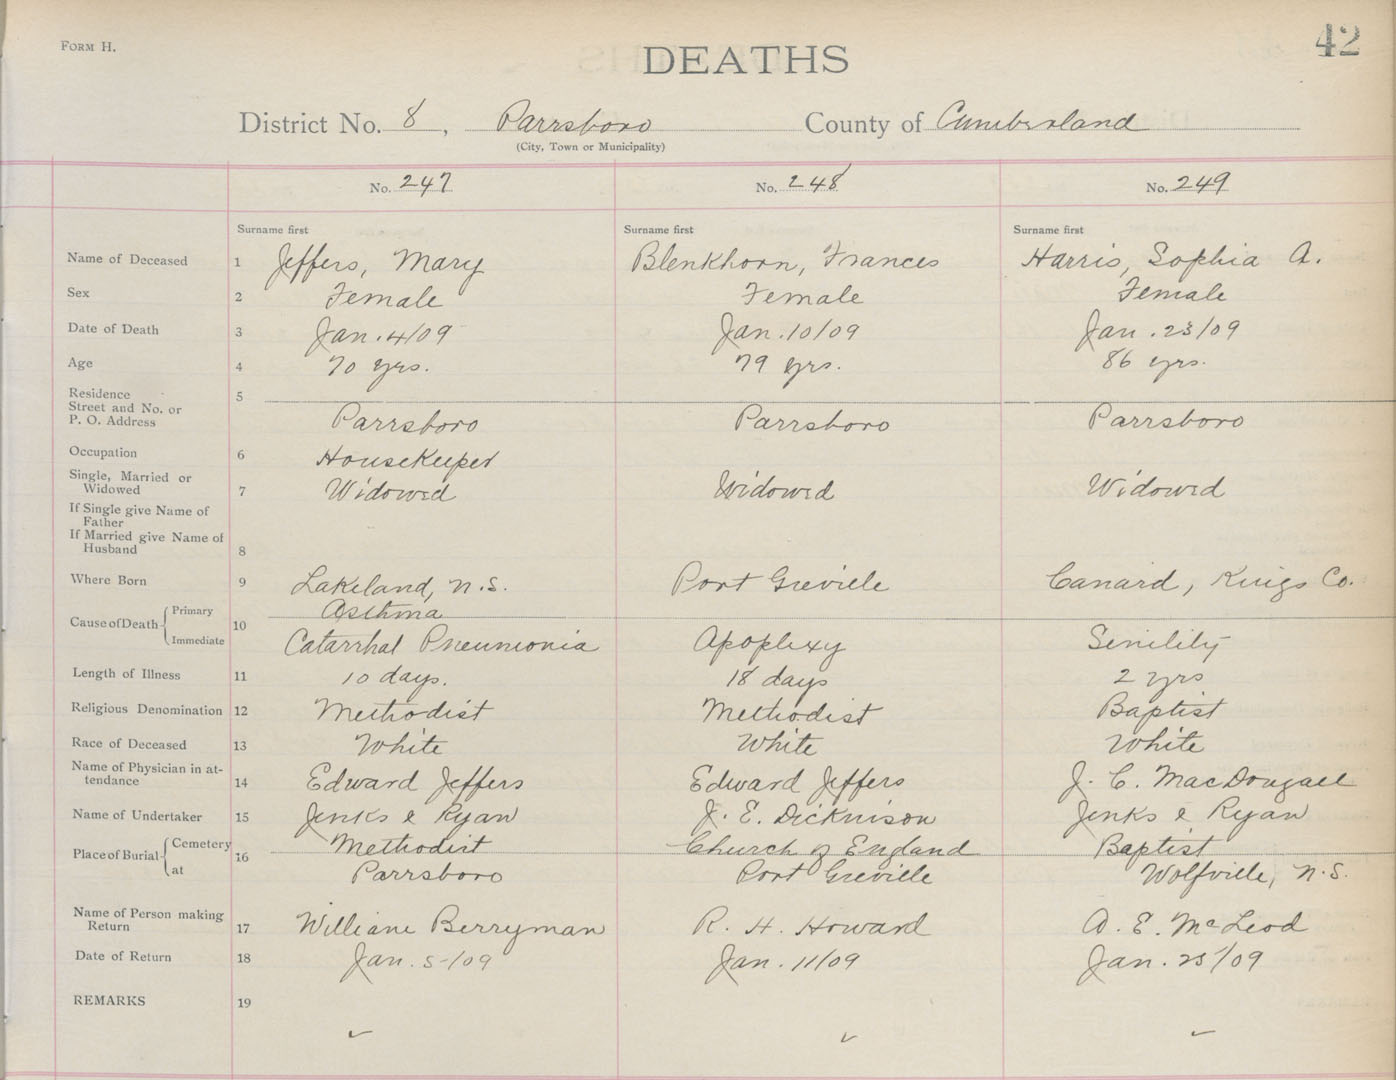 FORM H.
42
DEATHS
District No. 8, Parrsboro County of Cumberland
(City, Town or Municipality)
No. 247 No. 248 No. 249
Surname first Surname first Surname first
Name of Deceased 1 Jeffers, Mary Blenkhorn, Frances Harris, Sophia A.
Sex 2 Female Female Female
Date of Death 3 Jan. 4/09 Jan. 10/09 Jan. 23/09
Age 4 70 yrs. 79 yrs. 86 yrs.
Residence 5
Street and No. or
P. O. Address Parrsboro Parrsboro Parrsboro
Occupation 6 Housekeeper
Single, Married or
Widowed 7 Widowed Widowed Widowed
If Single give Name of
Father
If Married give Name of
Husband 8
Where Born 9 Lakeland, N.S. Port Greville Canard, Kings Co.
Cause of Death Primary 10 Asthma
Immediate Catarrhal Pneumonia Apoplexy Senility
Length of Illness 11 10 days. 18 days 2 yrs
Religious Denomination 12 Methodist Methodist Baptist
Race of Deceased 13 White White White
Name of Physician in at-
tendance 14 Edward Jeffers Edward Jeffers J. C. MacDougall
Name of Undertaker 15 Jenks & Ryan J. E. Dickinson Jenks & Ryan
Place of Burial Cemetery 16 Methodist Church of England Baptist
at Parrsboro Port Greville Wolfville, N.S.
Name of Person making
Return 17 William Berryman R. H. Howard A. E. McLeod
Date of Return 18 Jan. 5/09 Jan. 11/09 Jan. 25/09
REMARKS 19